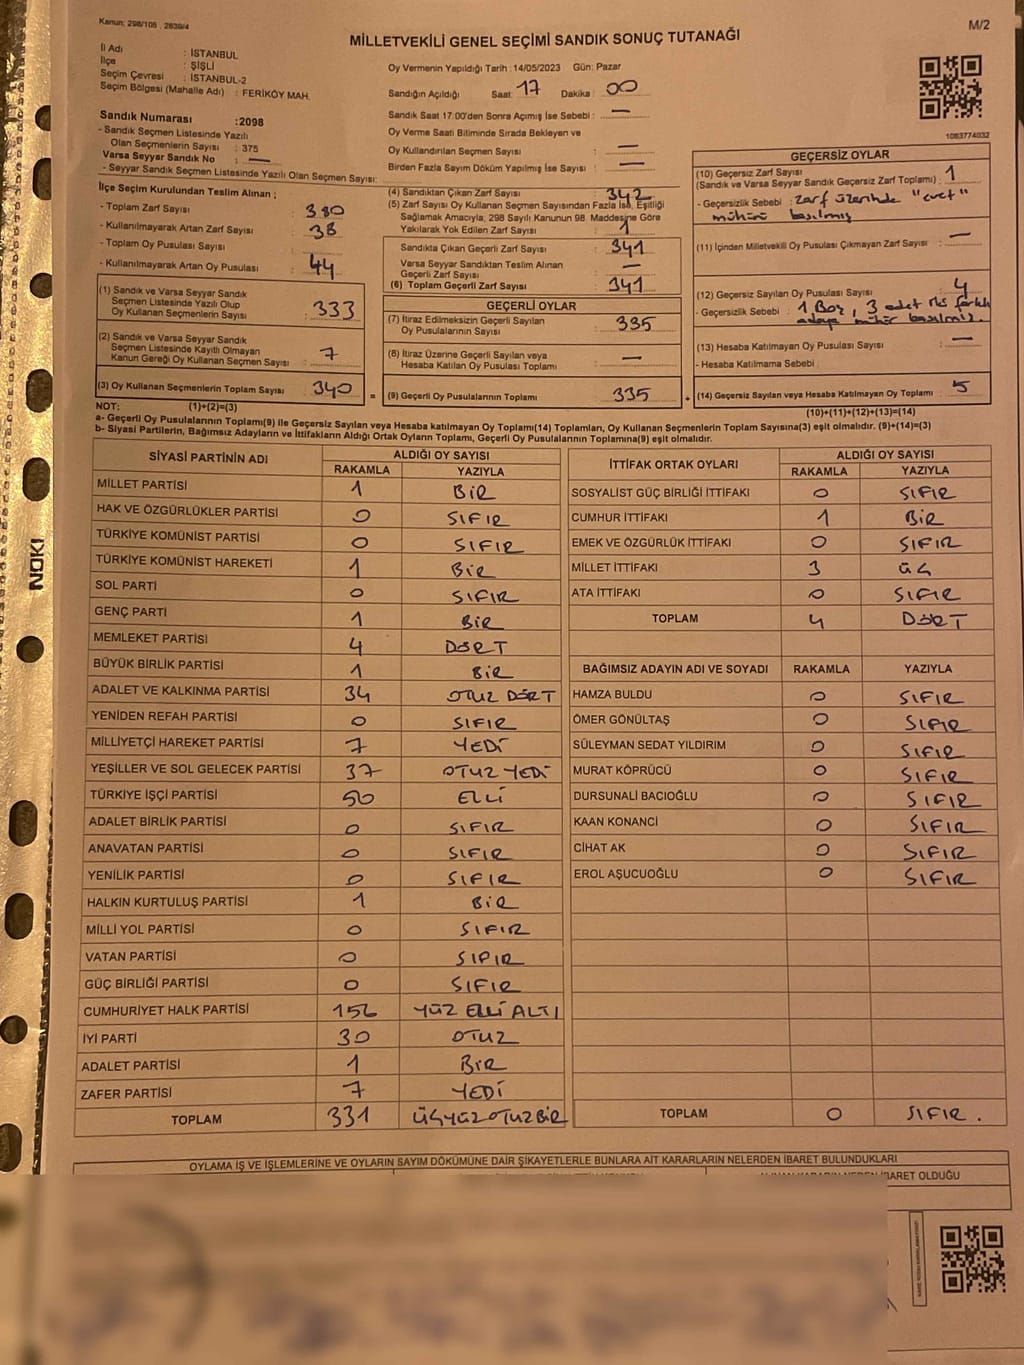 Kanun: 298/105 , 2839/4
M/2
MİLLETVEKİLİ GENEL SEÇİMİ SANDIK SONUÇ TUTANAĞI
İl Adı : İSTANBUL
İlçe : ŞİŞLİ
Seçim Çevresi : İSTANBUL-2
Seçim Bölgesi (Mahalle Adı) : FERİKÖY MAH.
Sandık Numarası : 2098
- Sandık Seçmen Listesinde Yazılı
Olan Seçmenlerin Sayısı : 375
Varsa Seyyar Sandık No : —
- Seyyar Sandık Seçmen Listesinde Yazılı Olan Seçmen Sayısı:
Oy Vermenin Yapıldığı Tarih : 14/05/2023 Gün: Pazar
Sandığın Açıldığı Saat: 17 Dakika : 00
Sandık Saat 17:00'den Sonra Açımış İse Sebebi : —
Oy Verme Saati Bitiminde Sırada Bekleyen ve
Oy Kullandırılan Seçmen Sayısı : —
Birden Fazla Sayım Döküm Yapılmış İse Sayısı : —
1083774032
İlçe Seçim Kurulundan Teslim Alınan ;
- Toplam Zarf Sayısı : 380
- Kullanılmayarak Artan Zarf Sayısı : 38
- Toplam Oy Pusulası Sayısı :
- Kullanılmayarak Artan Oy Pusulası : 44
(1) Sandık ve Varsa Seyyar Sandık
Seçmen Listesinde Yazılı Olup
Oy Kullanan Seçmenlerin Sayısı : 333
(2) Sandık ve Varsa Seyyar Sandık
Seçmen Listesinde Kayıtlı Olmayan
Kanun Gereği Oy Kullanan Seçmen Sayısı : 7
(3) Oy Kullanan Seçmenlerin Toplam Sayısı : 340
(4) Sandıktan Çıkan Zarf Sayısı : 342
(5) Zarf Sayısı Oy Kullanan Seçmen Sayısından Fazla İse, Eşitliği
Sağlamak Amacıyla; 298 Sayılı Kanunun 98 Maddesine Göre
Yakılarak Yok Edilen Zarf Sayısı : 1
Sandıkta Çıkan Geçerli Zarf Sayısı : 341
Varsa Seyyar Sandıktan Teslim Alınan
Geçerli Zarf Sayısı : —
(6) Toplam Geçerli Zarf Sayısı : 341
GEÇERLİ OYLAR
(7) İtiraz Edilmeksizin Geçerli Sayılan
Oy Pusulalarının Sayısı : 335
(8) İtiraz Üzerine Geçerli Sayılan veya
Hesaba Katılan Oy Pusulası Toplamı : —
= (9) Geçerli Oy Pusulalarının Toplamı : 335
GEÇERSİZ OYLAR
(10) Geçersiz Zarf Sayısı : 1
(Sandık ve Varsa Seyyar Sandık Geçersiz Zarf Toplamı)
- Geçersizlik Sebebi : zarf üzerinde "evet"
mührü basılmış
(11) İçinden Milletvekili Oy Pusulası Çıkmayan Zarf Sayısı : —
(12) Geçersiz Sayılan Oy Pusulası Sayısı : 4
- Geçersizlik Sebebi : 1 Boş, 3 adet farklı
adaya mühür basılmış.
(13) Hesaba Katılmayan Oy Pusulası Sayısı : —
- Hesaba Katılmama Sebebi :
+ (14) Geçersiz Sayılan veya Hesaba Katılmayan Oy Toplamı : 5
NOT: (1)+(2)=(3)
(10)+(11)+(12)+(13)=(14)
a- Geçerli Oy Pusulalarının Toplamı(9) ile Geçersiz Sayılan veya Hesaba katılmayan Oy Toplamı(14) Toplamları, Oy Kullanan Seçmenlerin Toplam Sayısına(3) eşit olmalıdır. (9)+(14)=(3)
b- Siyasi Partilerin, Bağımsız Adayların ve İttifakların Aldığı Ortak Oyların Toplamı, Geçerli Oy Pusulalarının Toplamına(9) eşit olmalıdır.
SİYASİ PARTİNİN ADI ALDIĞI OY SAYISI
RAKAMLA YAZIYLA
MİLLET PARTİSİ 1 BİR
HAK VE ÖZGÜRLÜKLER PARTİSİ 0 SIFIR
TÜRKİYE KOMÜNİST PARTİSİ 0 SIFIR
TÜRKİYE KOMÜNİST HAREKETİ 1 BİR
SOL PARTİ 0 SIFIR
GENÇ PARTİ 1 BİR
MEMLEKET PARTİSİ 4 DÖRT
BÜYÜK BİRLİK PARTİSİ 1 BİR
ADALET VE KALKINMA PARTİSİ 34 OTUZ DÖRT
YENİDEN REFAH PARTİSİ 0 SIFIR
MİLLİYETÇİ HAREKET PARTİSİ 7 YEDİ
YEŞİLLER VE SOL GELECEK PARTİSİ 37 OTUZ YEDİ
TÜRKİYE İŞÇİ PARTİSİ 50 ELLİ
ADALET BİRLİK PARTİSİ 0 SIFIR
ANAVATAN PARTİSİ 0 SIFIR
YENİLİK PARTİSİ 0 SIFIR
HALKIN KURTULUŞ PARTİSİ 1 BİR
MİLLİ YOL PARTİSİ 0 SIFIR
VATAN PARTİSİ 0 SIFIR
GÜÇ BİRLİĞİ PARTİSİ 0 SIFIR
CUMHURİYET HALK PARTİSİ 156 YÜZ ELLİ ALTI
İYİ PARTİ 30 OTUZ
ADALET PARTİSİ 1 BİR
ZAFER PARTİSİ 7 YEDİ
TOPLAM 331 ÜÇYÜZOTUZBİR
İTTİFAK ORTAK OYLARI ALDIĞI OY SAYISI
RAKAMLA YAZIYLA
SOSYALİST GÜÇ BİRLİĞİ İTTİFAKI 0 SIFIR
CUMHUR İTTİFAKI 1 BİR
EMEK VE ÖZGÜRLÜK İTTİFAKI 0 SIFIR
MİLLET İTTİFAKI 3 ÜÇ
ATA İTTİFAKI 0 SIFIR
TOPLAM 4 DÖRT
BAĞIMSIZ ADAYIN ADI VE SOYADI RAKAMLA YAZIYLA
HAMZA BULDU 0 SIFIR
ÖMER GÖNÜLTAŞ 0 SIFIR
SÜLEYMAN SEDAT YILDIRIM 0 SIFIR
MURAT KÖPRÜCÜ 0 SIFIR
DURSUNALİ BACIOĞLU 0 SIFIR
KAAN KONANCİ 0 SIFIR
CİHAT AK 0 SIFIR
EROL AŞUCUOĞLU 0 SIFIR
TOPLAM 0 SIFIR.
OYLAMA İŞ VE İŞLEMLERİNE VE OYLARIN SAYIM DÖKÜMÜNE DAİR ŞİKAYETLERLE BUNLARA AİT KARARLARIN NELERDEN İBARET BULUNDUKLARI
İBARET OLDUĞU
NOKI